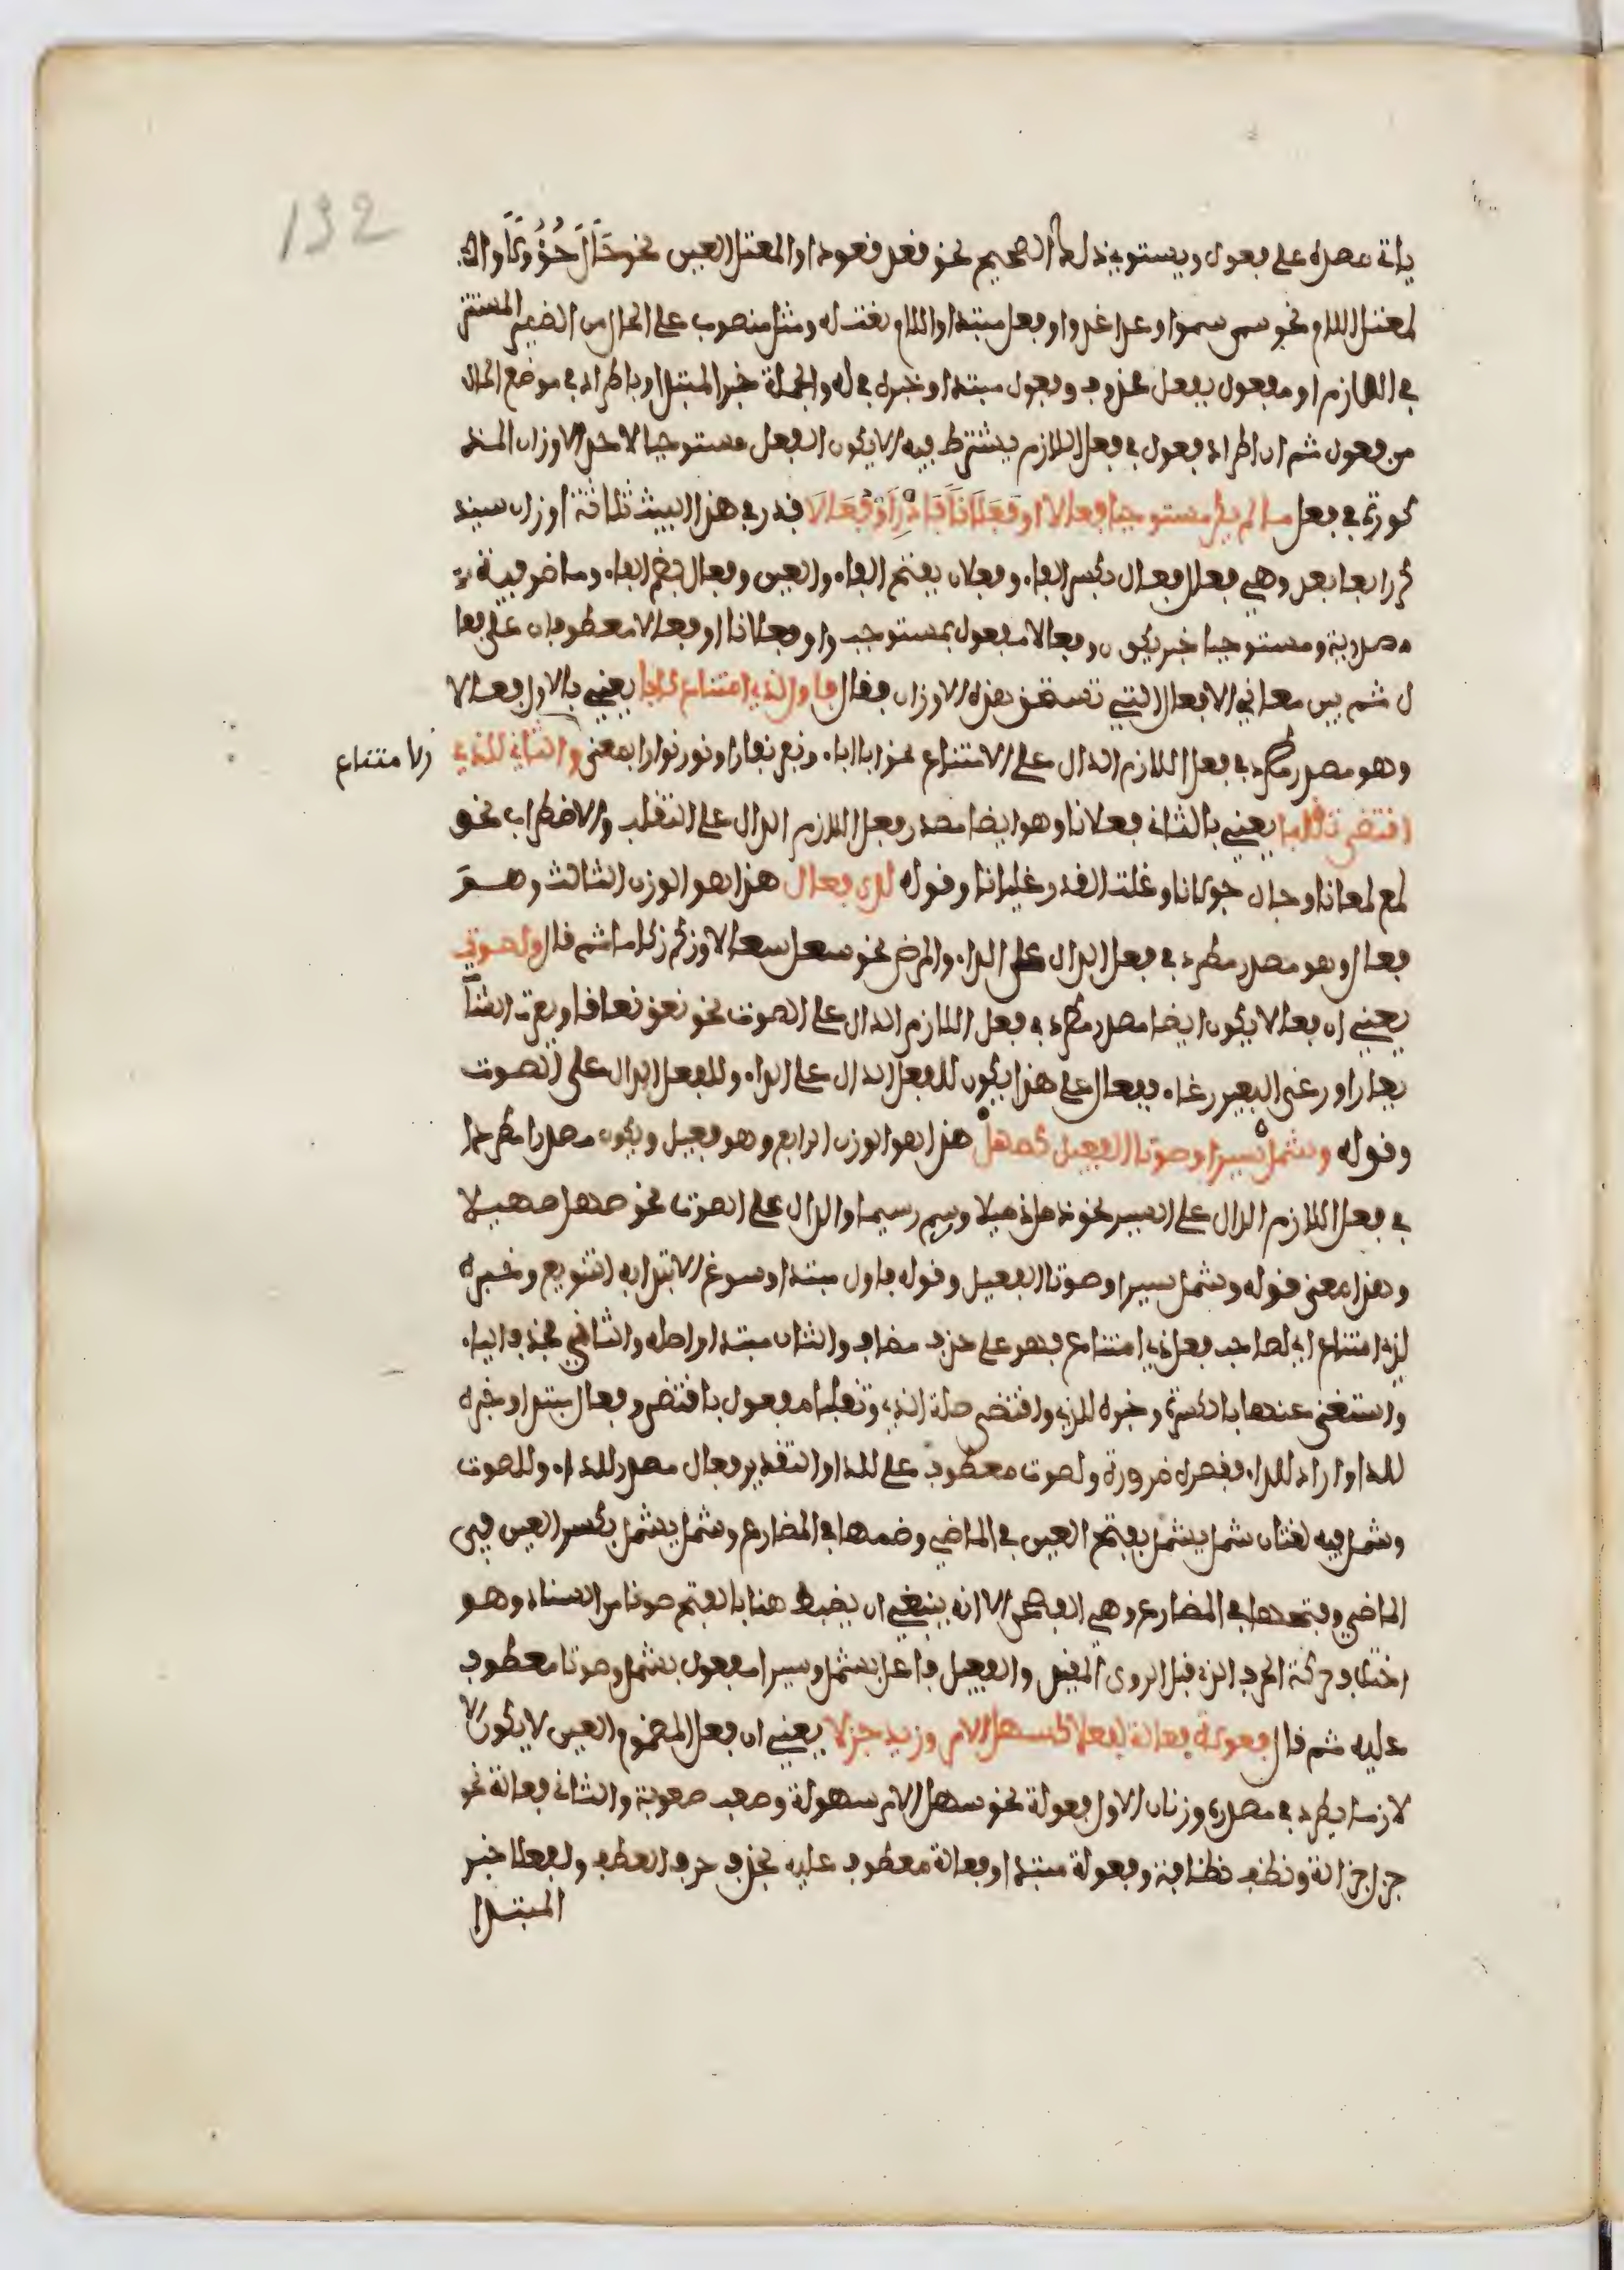 132
ياتي مصدره على فعول ويستوي في ذلك الصحيح نحو قعد قعودا والمعتل العين نحو حَالَ حُؤُولًا وا
لمعتل اللام نحو سمى سموا وغدا غدوا وفعل مبتدا واللازم نعت له ومثل منصوب على الحال من الضمير المستتر
في اللازم او مفعول بفعل محذوف وفعول مبتدا وخبره في له والجملة خبر المبتدا وباطراد في موضع الحال
من فعول ثم ان اطراد فعول في فعل اللازم يشترط فيه الا يكون الفعل مستوجبا لاحد الاوزان المذ
كورة في فعل ما لم يكن مستوجبا فعالا او فَعَلَانًا فَادْرِ أَوْ فُعَالَا فذكر في هذا البيت ثلاثة اوزان سيذ
كر رابعا بعد وهي فعل فعال بكسر الفاء وفعلان بفتح الفاء والعين وفعال بضم الفاء وما ظرفية
مصدرية ومستوجبا خبر يكون وفعالا مفعول بمستوجب واو فعلانا او فعالا معطوفان على فعا
ل ثم بين معاني الافعال التي تستحق هذه الاوزان فقال فاول لذي امتناع كابى يعني بالاول فعالا
وهو مصدر مطرد في فعل اللازم الدال على الامتناع نحو ابا اباء ونفر نفارا ونور نوارا بمعنى والثاني للذي
ولا متناع
اقتضى تقلبا يعني بالثاني فعلانا وهو ايضا مصدر فعل اللازم الدال على التقلب والاضطراب نحو
لمع لمعانا وجال جولانا وغلت القدر غليانا وقوله للدى فعال هذا هو الوزن الثالث وهو
فعال وهو مصدر مطرد في فعل الدال على الداء والمرض نحو سعل سعالا وزكم زكاما ثم قال ولصوت
يعني ان فعالا يكون ايضا مصدر مطرد في فعل اللازم الدال على الصوت نحو نعق نعاقا ويعرت الشاة
يعارا ورغى البعير رغاء ففعال على هذا يكون للفعل الدال على الداء وللفعل الدال على الصوت
وقوله وشمل سيرا وصوتا الفعيل كصهل هذا هو الوزن الرابع وهو فعيل ويكون مصدرا مطردا
في فعل اللازم الدال على السير نحو ذمل ذميلا ورسم رسيما والدال على الصوت نحو صهل صهيلا
وهذا معنى قوله وشمل سيرا وصوتا الفعيل وقوله فاول مبتدا وسوغ الابتدا به التنويع وخبره
لذي امتناع اي لصاحب فعل ذي امتناع فهو على حذف مضاف والثان مبتدا واصله والثاني فحذف الياء
واستغنى عنها بالكسرة وخبره للذي واقتضى صلة الذي وتقلبا مفعول باقتضى وفعال مبتدا وخبره
للدا واراد للداء فقصره ضرورة ولصوت معطوف على للدا والتقدير فعال مصدر للداء وللصوت
وشمل فيه لغتان شمل يشمل بفتح العين في الماضي وضمها في المضارع وشمل يشمل بكسر العين في
الماضي وفتحها في المضارع وهي الفصحى الا انه ينبغي ان يضبط هنا بالفتح صونا من السناد وهو
اختلاف حركة الحرف الذي قبل الروي المقيد والفعيل فاعل بشمل وسيرا مفعول بشمل وصوتا معطوف
عليه ثم قال فعولة فعالة لفعلا كسهل الامر وزيد جزلا يعني ان فعل المضموم العين لا يكون الا
لازما يطرد في مصدره وزنان الاول فعولة نحو سهل الامر سهولة وصعب صعوبة والثاني فعالة نحو
جزل جزالة ونظف نظافة وفعولة مبتدا وفعالة معطوف عليه بحذف حرف العطف ولفعلا خبر
المبتدا